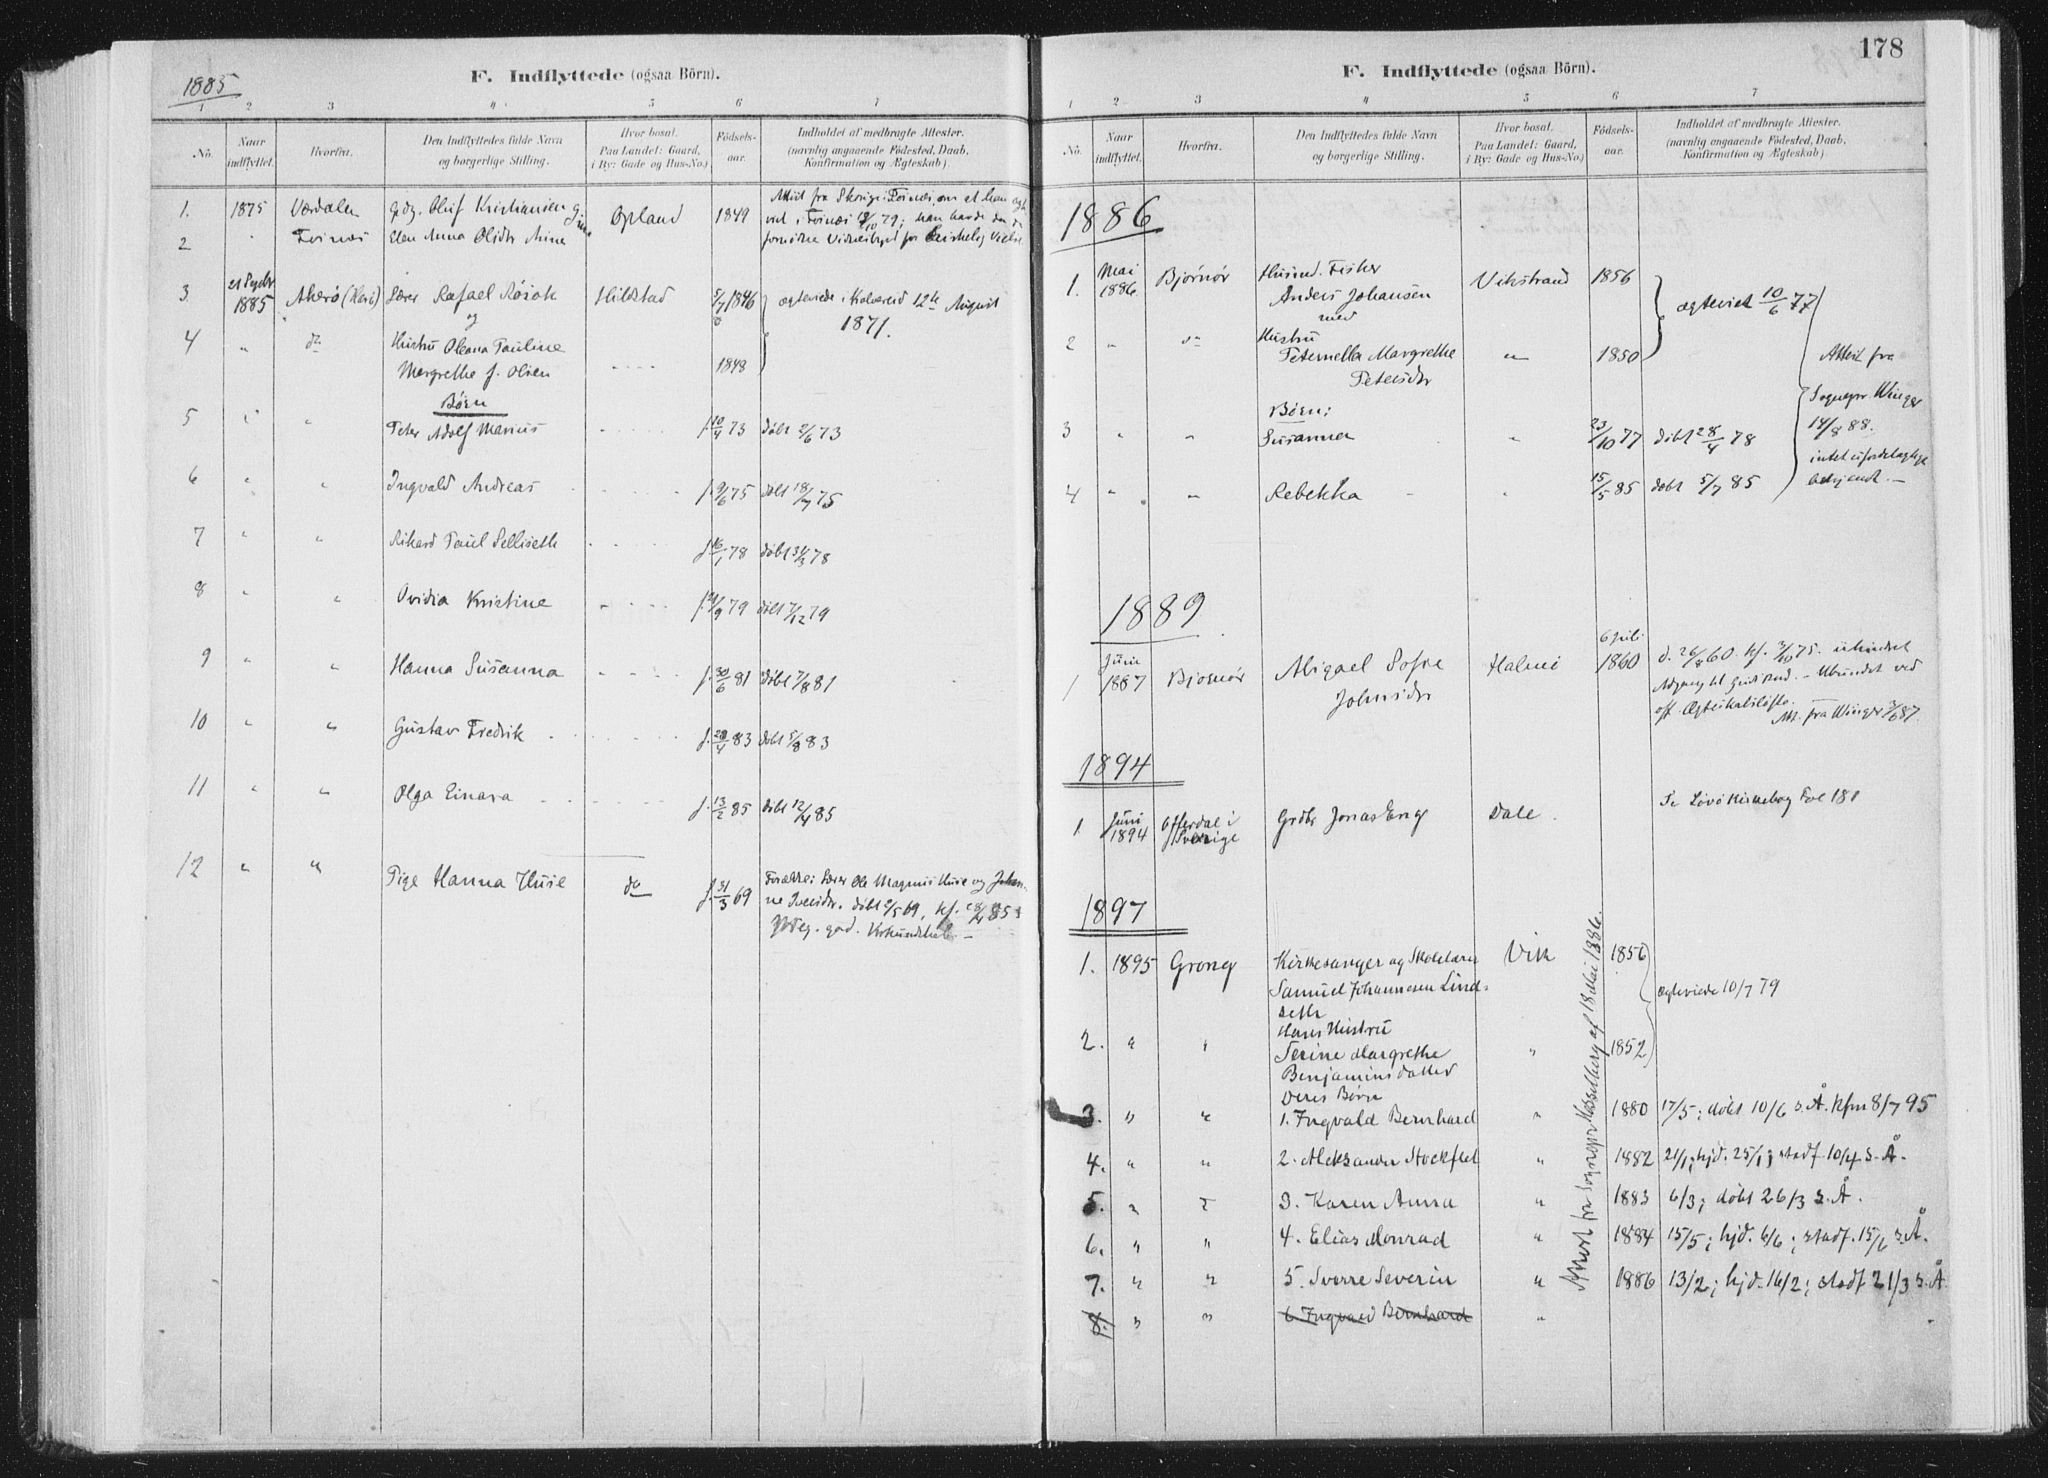 178
1885
F. Indflyttede (ogsaa Börn).
1 2 3 4 5 6 7
No. Naar indflyttet. Hvorfra. Den Indflyttedes fulde Navn og borgerlige Stilling. Hvor bosat. Paa Landet: Gaard, i By: Gade og Hus-No.) Födsels-aar. Indholdet af medbragte Attester. (navnlig angaaende Födested, Daab, Konfirmation og Ægteskab).
1. 1875 Værdalen Olüf Kristiansen Opland 1849
2 " Fosnæs Elen Anna Olsdtr
3 21 Septbr 1885 Akerö Lærer Rafael Rösok Hildstad 5/7 1846 ægteviede i Kolvereid 12te August
og 1871.
4 " do Hustrü Oleana Pauline
Margrethe f. Olsen 1848
Börn
5 " " Peter Adolf Marius f. 10/4 73 döbt 2/6 73
6 " " Ingvald Andreas f. 9/6 75 döbt 18/7 75
7 " " Rikard Paul Selliseth f. 16/1 78 döbt 31/3 78
8 " " Ovidia Kristine 79 döbt 7/12 79
9 " " Hanna Süsanna f. 30/6 81 döbt 7/8 81
10 " " Güstav Fredrik f. 20/4 83 döbt 5/8 83
11 " " Olga Einara f. 13/2 85 döbt 12/4 85
12 " " Pige Hanna Hüse do f. 31/3 69 Forældre: Lærer Ole Magnus Hüse og Johan-
ne döbt 2/5 69, kf. 85
F. Indflyttede (ogsaa Börn).
1 2 3 4 5 6 7
No. Naar indflyttet. Hvorfra. Den Indflyttedes fulde Navn og borgerlige Stilling. Hvor bosat. Paa Landet: Gaard, i By: Gade og Hus-No.) Födsels-aar. Indholdet af medbragte Attester. (navnlig angaaende Födested, Daab, Konfirmation og Ægteskab).
1886
1. Mai 1886 Bjørnör Husmd. Fisker
Anders Johansen Vikstrand 1856 ægteviet 10/6 77
med
2 " do Hüstrü
Peternella Margrethe " 1850 Attest fra
Petersdtr Sognepr Winger
Börn: 14/8 88.
3 " " Süsanna " 23/10 77 döbt 28/4 78
4 " " Rebekka " 15/5 85 döbt 5/7 85
1889
1 Jüni 1887 Bjørnör Abigael Sofie Johnsdtr 6 Jüli 1860
1894
1 Jüni 1894 Offerdal i Sverige Grdbr Jonas Eng Dale. Se Lövö Kirkebog Fol 181
1897
1. 1895 Grong Kirkesanger og Skolelærer Vik 1856
Samuel Johannesen Lind-
seth ægteviede 10/7 79
2. " " Hans Hustru
Serine Margrethe " 1852
Benjaminsdatter
Deres Børn
3. " " 1. Ingvald Bernhard " 1880 17/5; döbt 10/6 s. Å. kfm 8/7 95
4. " " 2. Aleksander Stockflet " 1882 21/1; hjd. 25/1; stadf. 10/4 s. Å.
5. " " 3. Karen Anna " 1883 6/3; döbt 26/3 s. Å.
6. " " 4. Elias Monrad " 1884 15/5; hjd. 6/6; stadf. 15/6 s. Å.
7. " " 5. Sverre Severin " 1886 13/2; hjd. 16/2; stadf 21/3 s. Å
8. " " 6. Ingvald Bernhard "
Attest fra Sognepr Hasselberg af 18 Mai 1886.